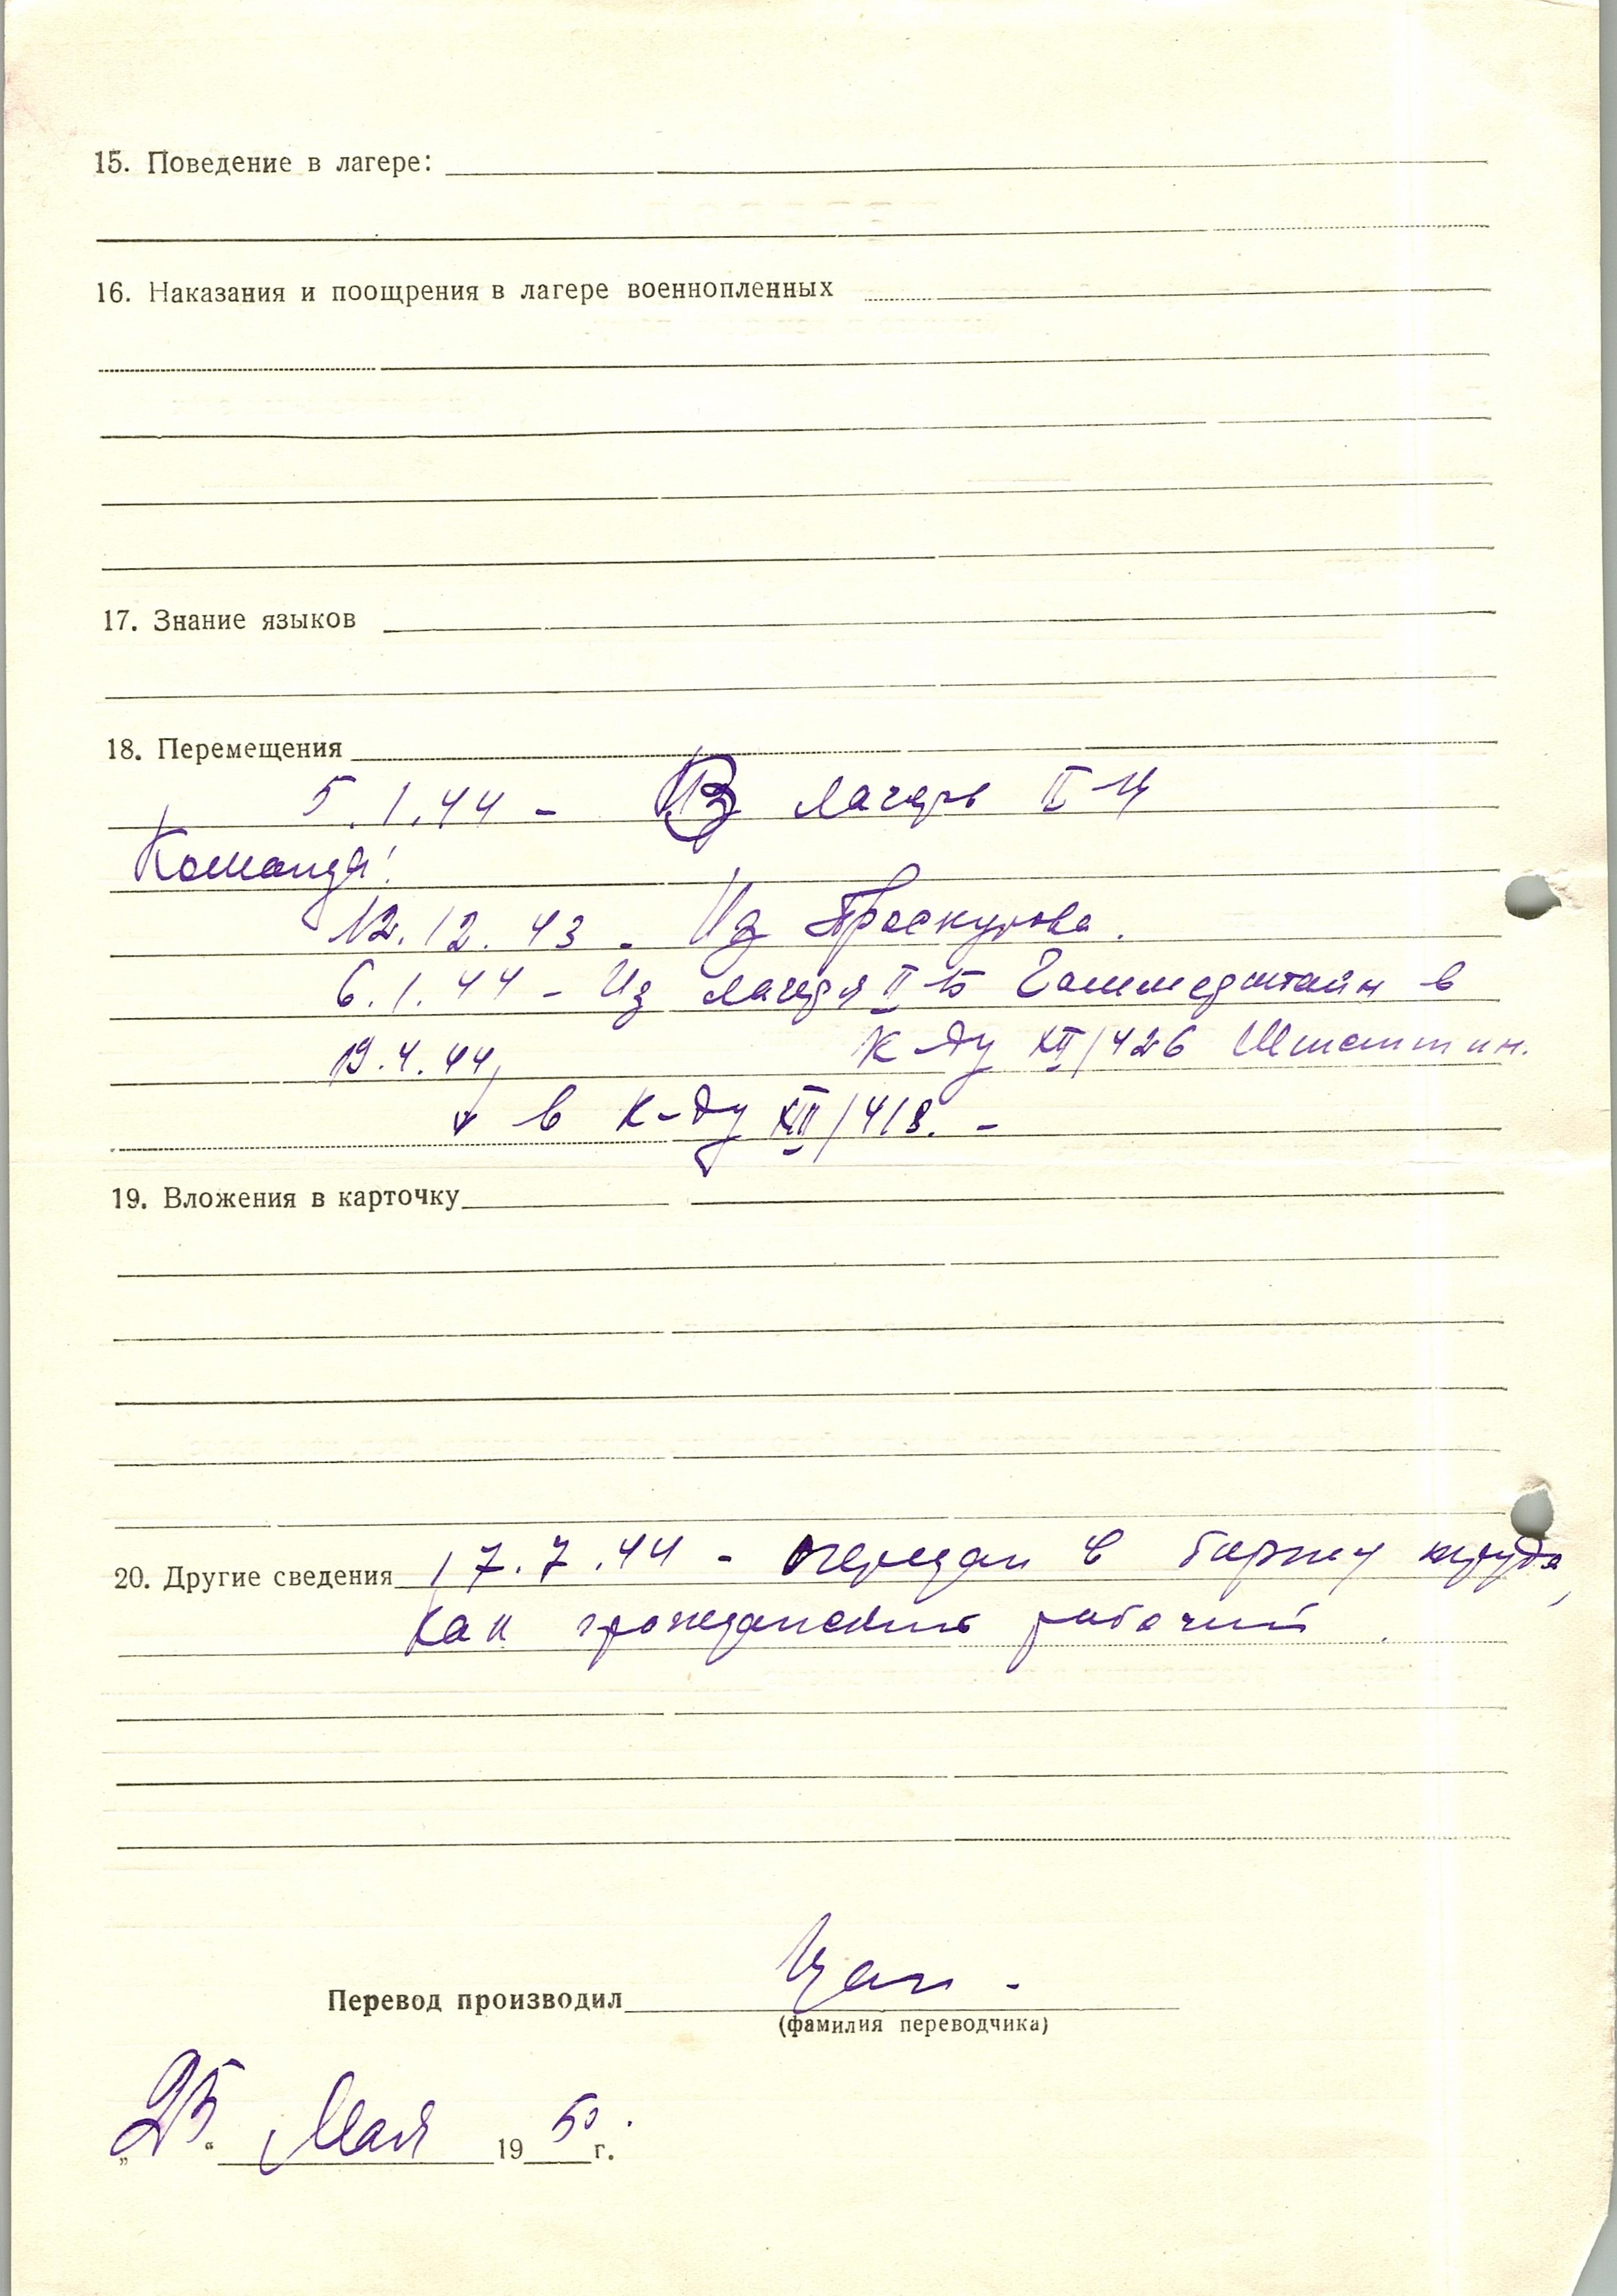 15. Поведение в лагере:
16. Наказания и поощрения в лагере военнопленных
17. Знание языков
18. Перемещения
5.1.44 - В лагерь II-Ц
Команда:
12.12.43. Из Проскурова.
6.1.44 - Из лагеря II-Б Гаммерштайн в
19.4.44, к-ду XII/426 Штеттин.
в к-ду XII/418. -
19. Вложения в карточку
20. Другие сведения 17.7.44 - передан в биржу труда,
как гражданский рабочий.
Перевод производил
(фамилия переводчика)
„25“ Мая 1950 г.